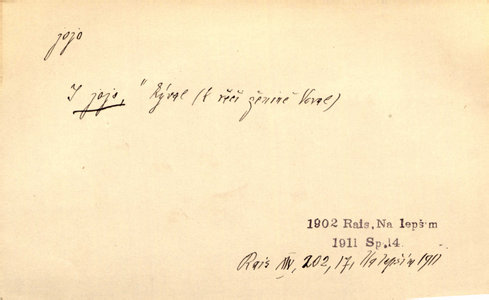 jojo
„I jojo," kýval (k řeči ženině Voral)
1902 Rais, Na lepším
1911 Sp.14.
Rais III, 202, 17, Na lepším 1911